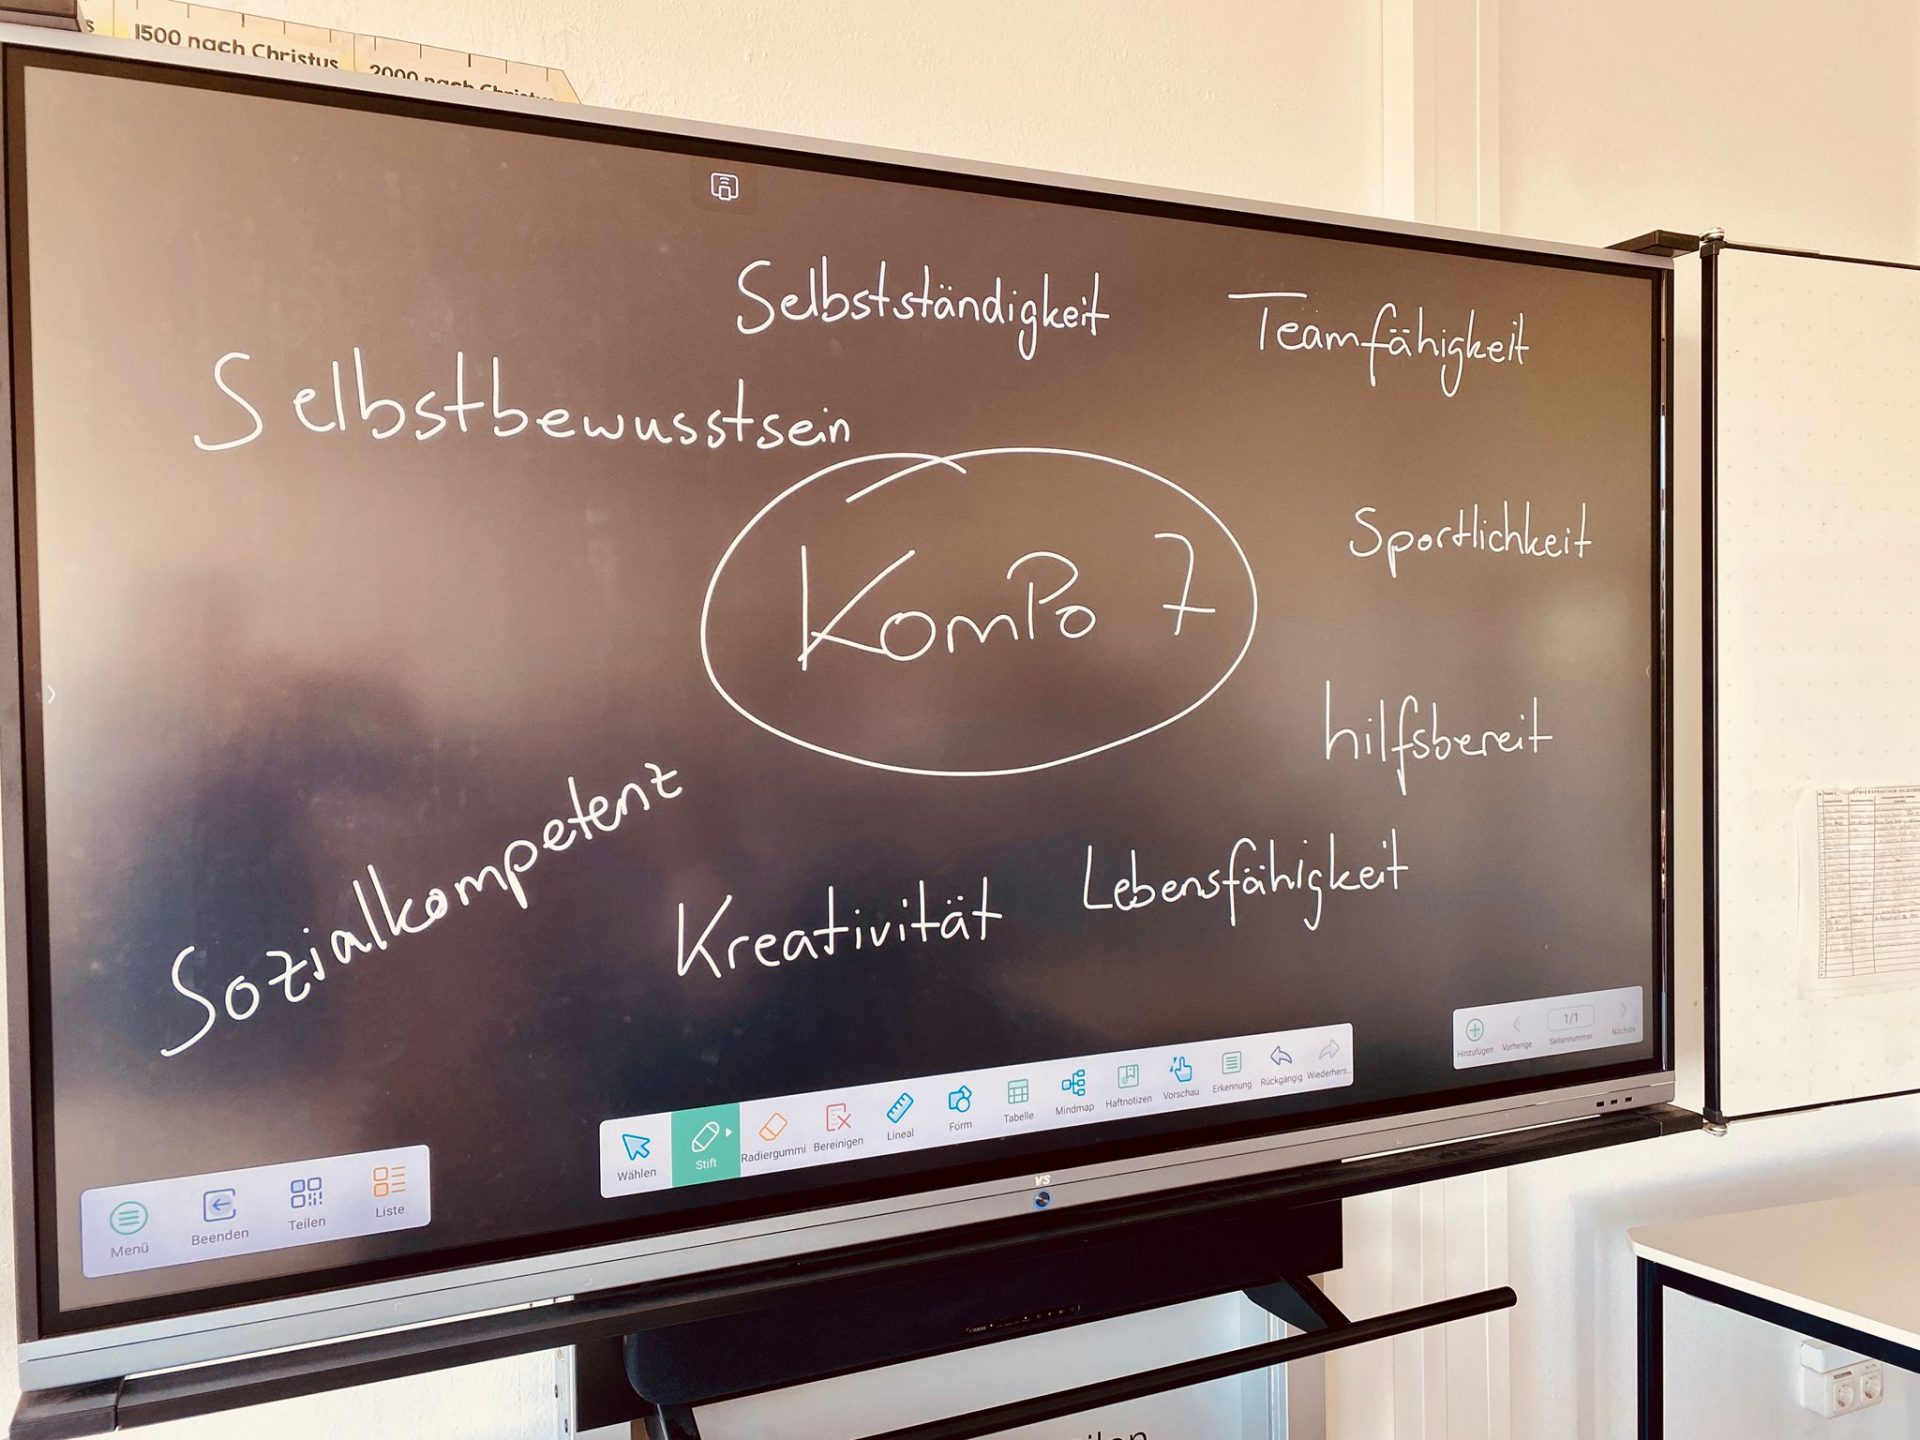 1500 nach Christus
2000 nach Christus
Selbstständigkeit
Teamfähigkeit
Selbstbewusstsein
KomPo 7
Sportlichkeit
hilfsbereit
Sozialkompetenz
Kreativität
Lebensfähigkeit
Hinzufügen
Vorherige
1/1
Seitennummer
Nächste
Wählen
Stift
Radiergummi
Bereinigen
Lineal
Form
Tabelle
Mindmap
Haftnotizen
Vorschau
Erkennung
Rückgängig
Wiederhers...
Menü
Beenden
Teilen
Liste
VS